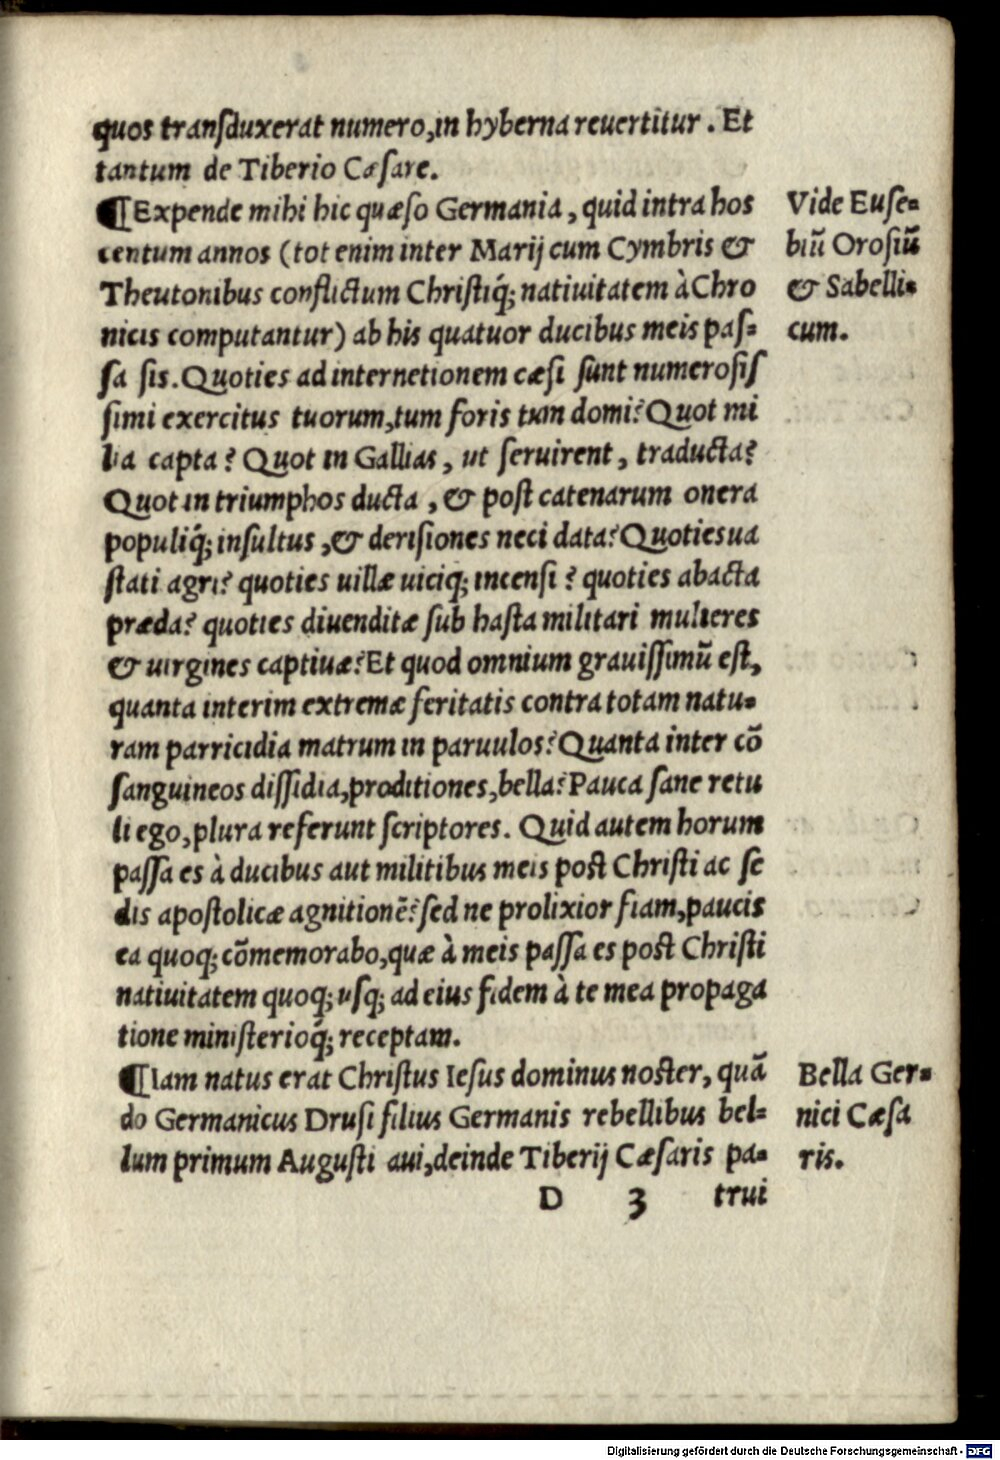 quos transduxerat numero, in hyberna reuertitur. Et
tantum de Tiberio Cæsare.
¶Expende mihi hic quæso Germania, quid intra hos
centum annos (tot enim inter Marij cum Cymbris &
Theutonibus conflictum Christiq́; natiuitatem à Chro
nicis computantur) ab his quatuor ducibus meis pas=
sa sis. Quoties ad internetionem cæsi sunt numerosis
simi exercitus tuorum, tum foris tum domi? Quot mi
lia capta? Quot in Gallias, ut seruirent, traducta?
Quot in triumphos ducta, & post catenarum onera
populiq́; insultus, & derisiones neci data? Quoties ua
stati agri? quoties uillæ uiciq; incensi? quoties abacta
præda? quoties diuenditæ sub hasta militari mulieres
& uirgines captiuæ? Et quod omnium grauissimũ est,
quanta interim extremæ feritatis contra totam natu=
ram parricidia matrum in paruulos? Quanta inter cõ
sanguineos dissidia, proditiones, bella? Pauca sane retu
li ego, plura referunt scriptores. Quid autem horum
passa es à ducibus aut militibus meis post Christi ac se
dis apostolicæ agnitionẽ? sed ne prolixior fiam, paucis
ea quoq; cõmemorabo, quæ à meis passa es post Christi
natiuitatem quoq; usq; ad eius fidem à te mea propaga
tione ministerioq́; receptam.
¶Iam natus erat Christus Iesus dominus noster, quã
do Germanicus Drusi filius Germanis rebellibus bel=
lum primum Augusti aui, deinde Tiberij Cæsaris pa=
D 3 trui
Vide Euse=
biũ Orosiũ
& Sabelli=
cum.
Bella Ger=
nici Cæsa
ris.
Digitalisierung gefördert durch die Deutsche Forschungsgemeinschaft - DFG